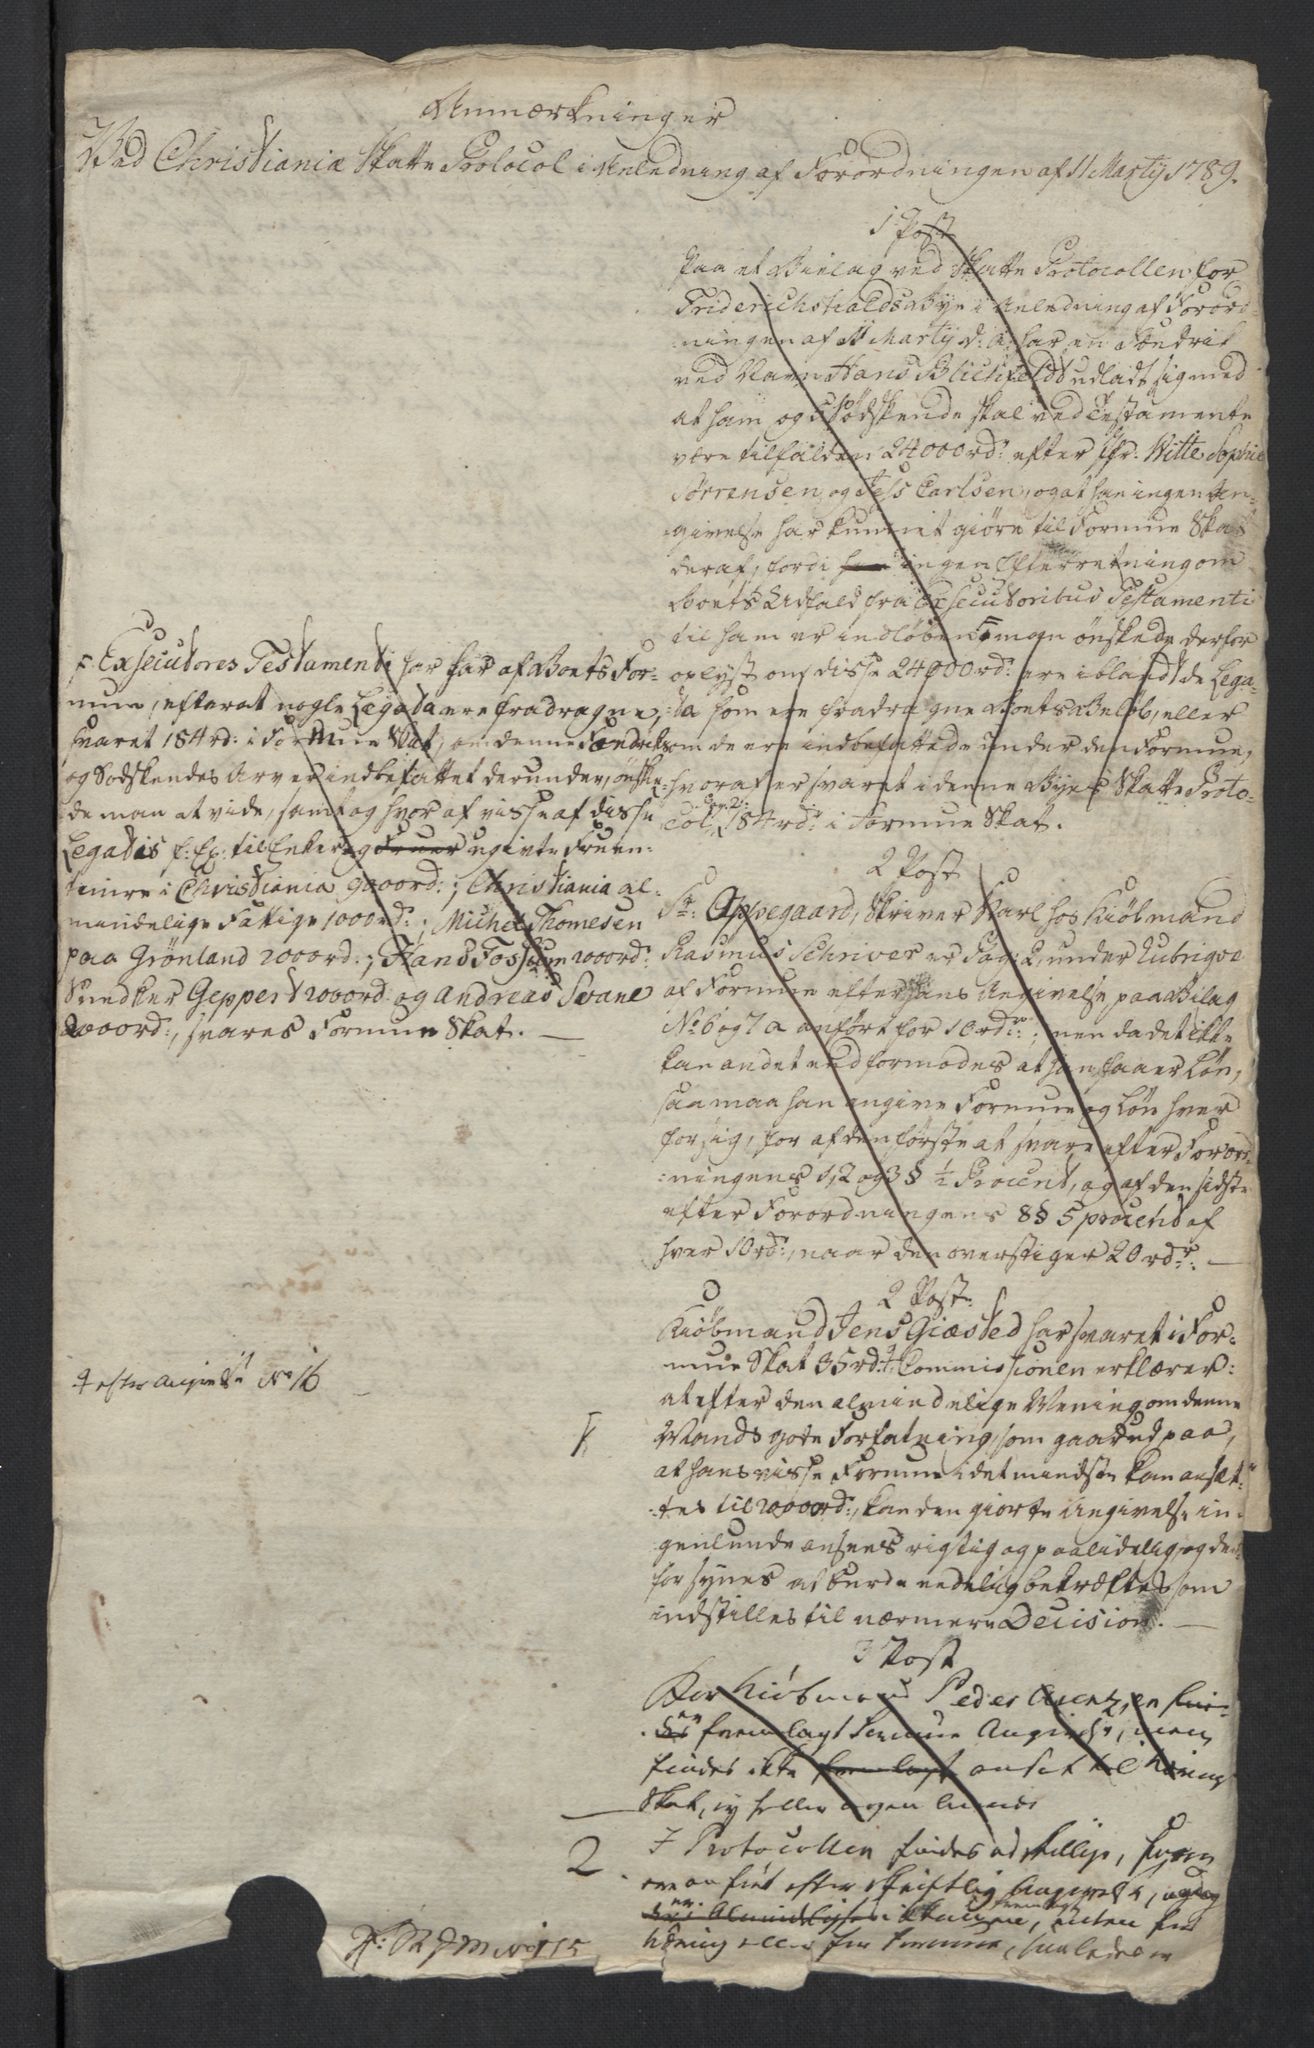 Anmærkninger
Ved Christiania Skatte Protocol i Anledning af Forordningen af 11 Martij 1789.
1 Post
Paa et Bielag ved Skatte Protocollen for
Friderichshalds Bye i Anledning af Forord-
ningen af 11 Martij d: a: har en Fændrik
ved Navn Hans Blichfeldt udladt sig med
at ham og 5 Sødskende skal ved Testamente
være tilfalden 24000rdr efter Jfr. Witte Sophie
Sørrensen og Jess Carlsen, og at han ingen An-
givelse har kunnet giøre til Formue Skat
deraf, fordi ingen Efterretning om
Boets Udfald fra Exsecutoribus Testamenti
til ham er indløben F man ønskede derfor
oplyst om disse 24000rd: ere iblandt de Lega-
ta som ere fradragne Boets Beløb, eller
om de ere indbefattede under den Formue,
hvoraf er svaret i denne Byes Skatte Proto-
col, Pag. 2: 184rdr i Formue Skat.
F Exsecutores Testamenti har her af Boets For-
mue, efterat nogle Legata ere fradragne,
svaret 184rd: i Formue Skat, om denne Fændriks
og Sødskendes Arv er indbefattet derunder, ønske-
de man at vide, samt og hvor af visse af disse
Legatis f: Ex: til Enker og Fruer ugivte Fruen-
timre i Christiania 9000rd:; Christiania al-
mindelige Fattige 1000rd:; Michel Thomesen
paa Grönland 2000rd:; Hans Fossum 2000rd:
Snedker Geppert 2000rd: og Andreas Svane
2000rd:, svares Formue Skat.
2 Post
Sr: Oppegaard, Skriver Karl hos Kiöbmand
Rasmus Schriver er Pag: 2, under Rubriqve
af Formue efter hans Angivelse paa Bilag
No 6 og 7 a anført for 10rdr:; men da det ikke
kan andet end formodes at han faaer Løn,
saa maa han angive Formue og Løn hver
for sig, for af den første at svare efter Forord-
ningens 1, 2 og 3 § 1/2 Procent, og af den sidste
efter Forordningens 8 § 5 procent af
hver 10rd:, naar den overstiger 20rdr:
2 Post.
Kiöbmand Jens Giæsted har svaret i For-
mue Skat 35rd: Commissionen erklærer:
at efter den almindelige Mening om denne
Mands gode Forfatning, som gaar ud paa,
at hans visse Formue i det mindste kan ansæt-
tes til 20000rd:, kan den giorte Angivelse in-
genlunde ansees rigtig og paalidelig og der-
for synes at burde eedelig bekræftes som
indstilles til nærmere Decision.
efter Angivelse No 16
3 Post
For Kiöbmand Peder er
fremlagt Formue Angivelse, men
findes ikke ansat til Nærings
Skat, ey heller
2
I Protocollen findes adskillige, hvor
ere ansat efter skriftlig Angivelse, og
uden for
Næring eller for Formue, saaledes